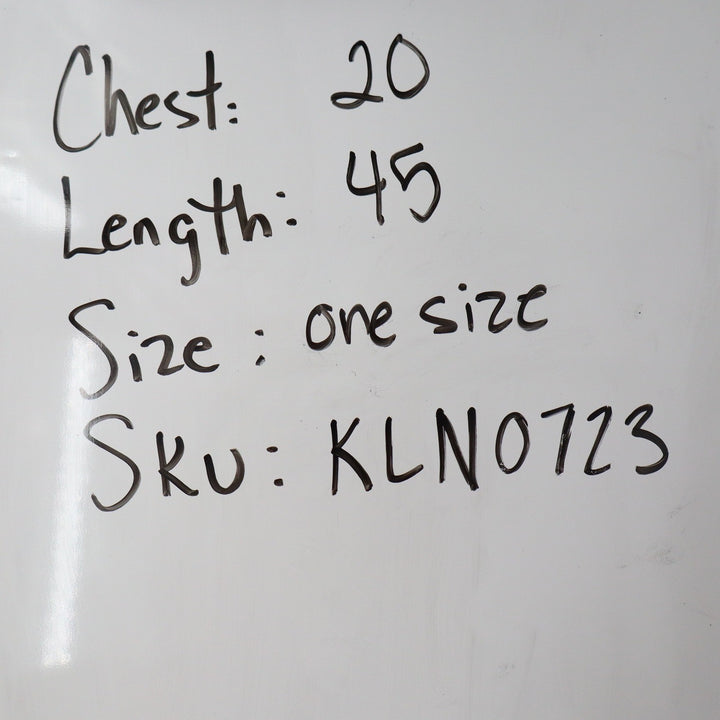 Chest: 20
Length: 45
Size: one size
SKU: KLN0723